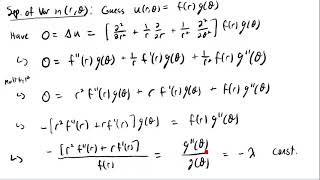 Sep. of Var in (r,θ): Guess u(r,θ) = f(r) g(θ)
Have 0 = Δu = [ ∂²/∂r² + 1/r ∂/∂r + 1/r² ∂²/∂θ² ] f(r) g(θ)
↳ 0 = f''(r) g(θ) + 1/r f'(r) g(θ) + 1/r² f(r) g''(θ)
↳ 0 = r² f''(r) g(θ) + r f'(r) g(θ) + f(r) g''(θ)
↳ -[r² f''(r) + r f'(r)] g(θ) = f(r) g''(θ)
↳ -[r² f''(r) + r f'(r)] / f(r) = g''(θ) / g(θ) = -λ const.